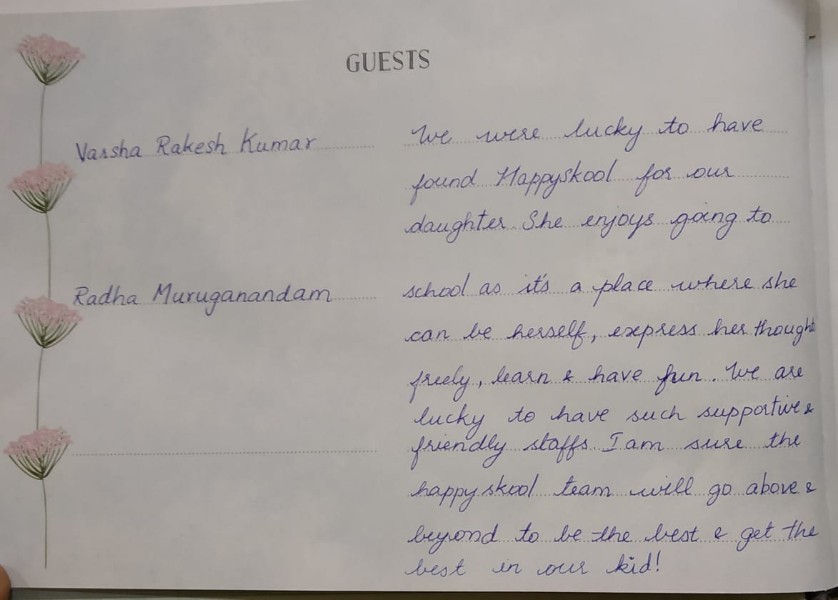 GUESTS
Varsha Rakesh Kumar
We were lucky to have
found Happyskool for our
daughter. She enjoys going to
Radha Muruganandam
school as it's a place where she
can be herself, express her thought
freely, learn & have fun. We are
lucky to have such supportive &
friendly staffs. I am sure the
happy skool team will go above &
beyond to be the best & get the
best in our kid!